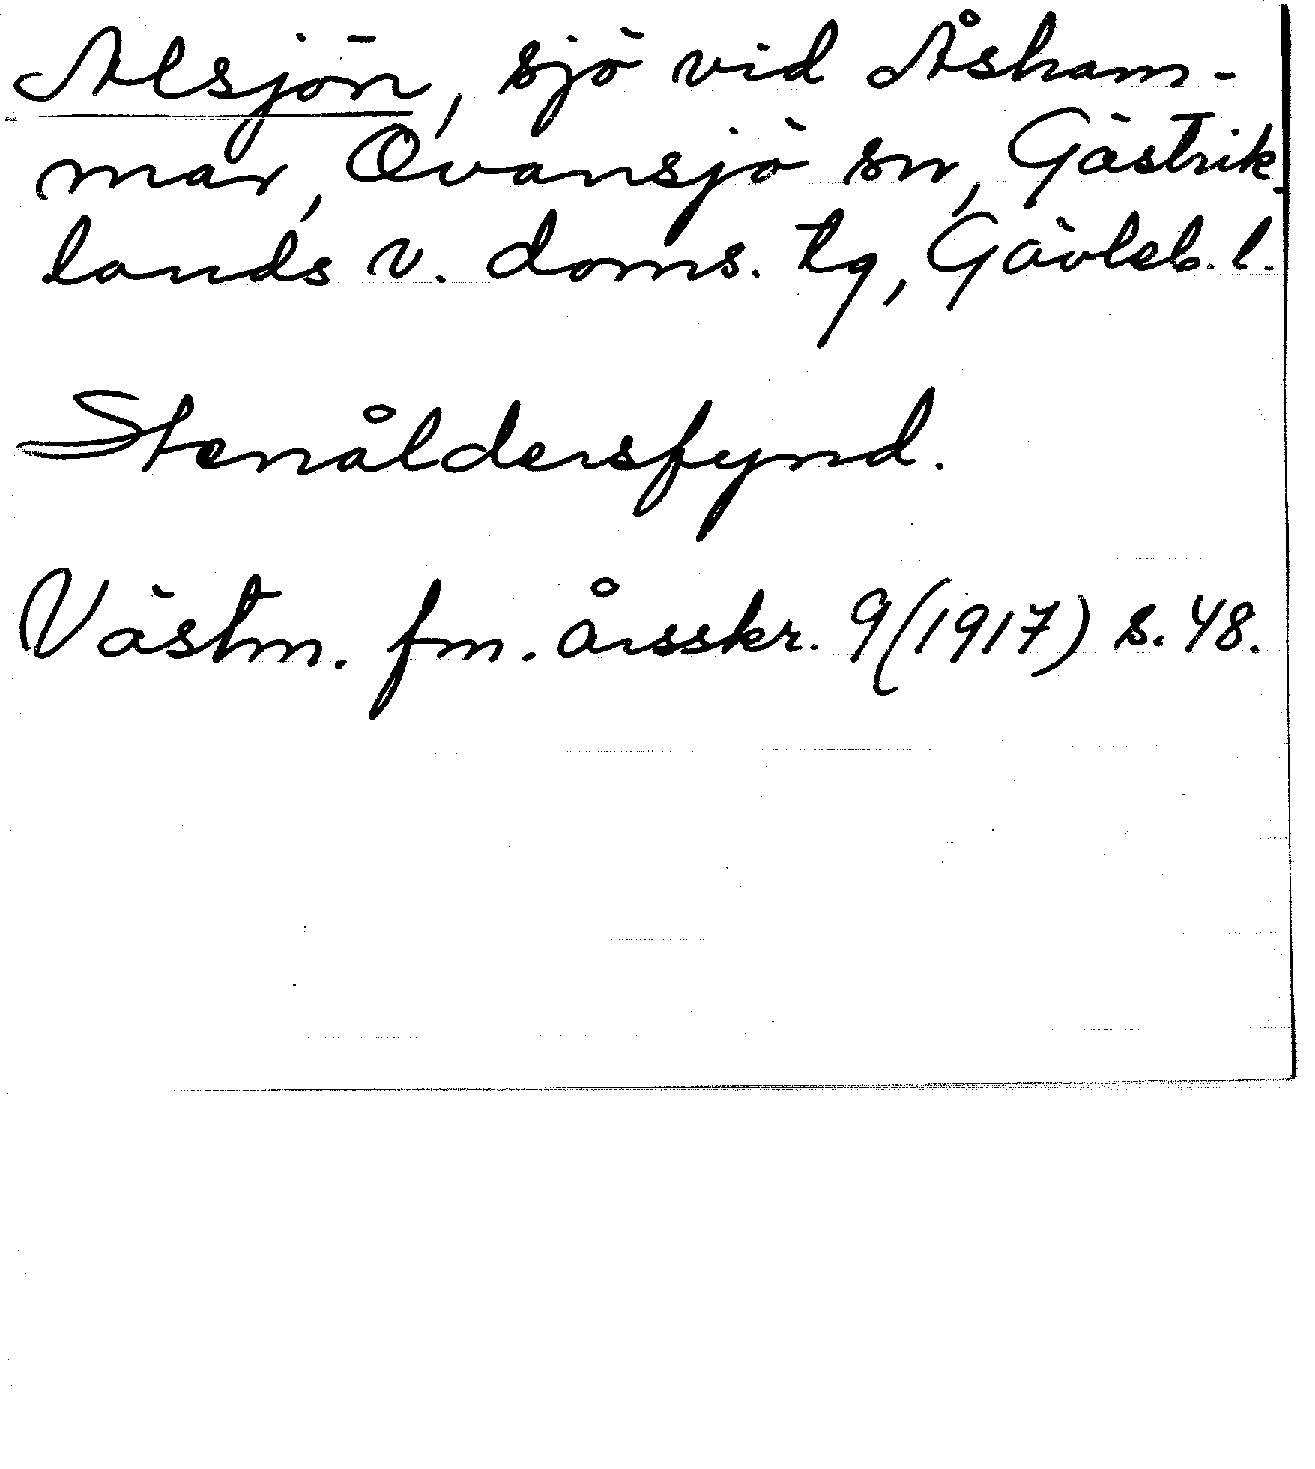 Alsjön, sjö vid Åsham-
mar, Ovansjö sn, Gästrik-
lands v. doms. tg, Gävleb. l.
Stenåldersfynd.
Västm. fm. årsskr. 9(1917) s. 48.